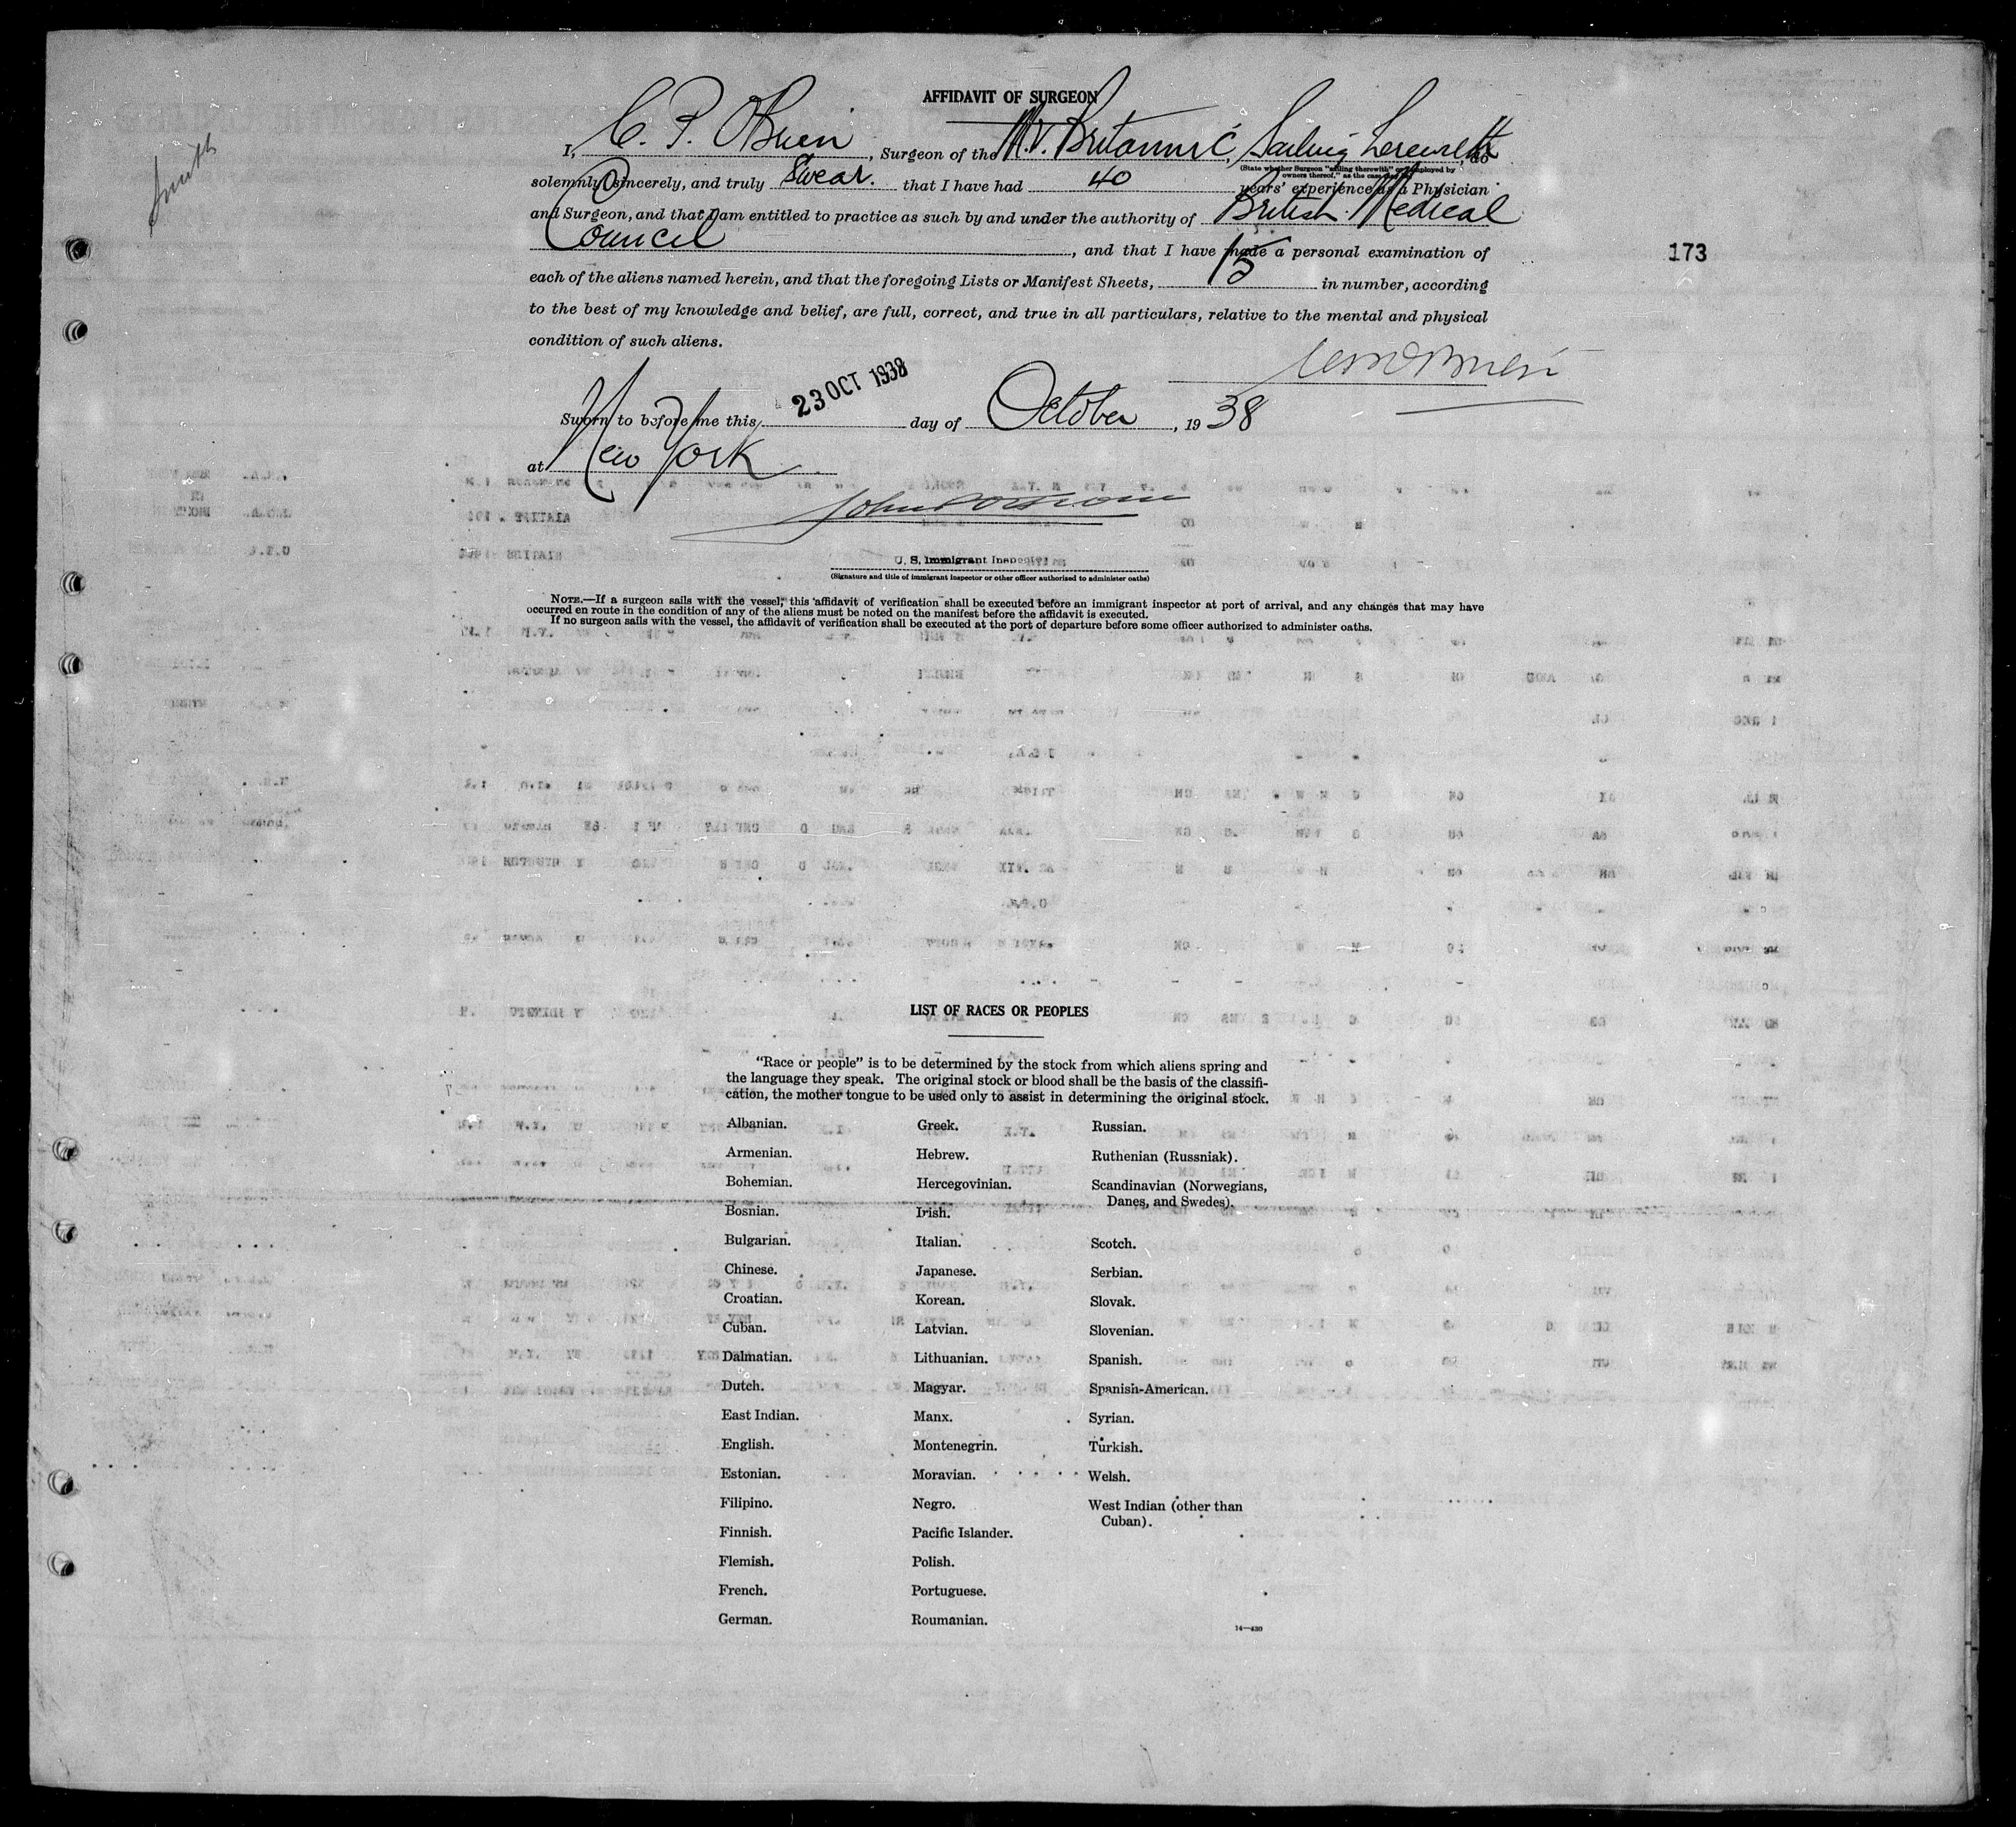 AFFIDAVIT OF SURGEON
Smith
I, C. P. O'Brien, Surgeon of the M.V. Britannic, Sailing therewith, do
(State whether Surgeon "sailing therewith" or employed by owners thereof," as the case may be)
solemnly, sincerely, and truly Swear. that I have had 40 years' experience as a Physician
and Surgeon, and that I am entitled to practice as such by and under the authority of British Medical
Council, and that I have made a personal examination of
173
each of the aliens named herein, and that the foregoing Lists or Manifest Sheets, 15 in number, according
to the best of my knowledge and belief, are full, correct, and true in all particulars, relative to the mental and physical
condition of such aliens.
Sworn to before me this 23 OCT 1938 day of October, 1938
at New York
U. S. Immigrant Inspector
(Signature and title of immigrant inspector or other officer authorized to administer oaths)
NOTE.—If a surgeon sails with the vessel, this affidavit of verification shall be executed before an immigrant inspector at port of arrival, and any changes that may have
occurred en route in the condition of any of the aliens must be noted on the manifest before the affidavit is executed.
If no surgeon sails with the vessel, the affidavit of verification shall be executed at the port of departure before some officer authorized to administer oaths.
LIST OF RACES OR PEOPLES
"Race or people" is to be determined by the stock from which aliens spring and
the language they speak. The original stock or blood shall be the basis of the classifi-
cation, the mother tongue to be used only to assist in determining the original stock.
Albanian.
Armenian.
Bohemian.
Bosnian.
Bulgarian.
Chinese.
Croatian.
Cuban.
Dalmatian.
Dutch.
East Indian.
English.
Estonian.
Filipino.
Finnish.
Flemish.
French.
German.
Greek.
Hebrew.
Hercegovinian.
Irish.
Italian.
Japanese.
Korean.
Latvian.
Lithuanian.
Magyar.
Manx.
Montenegrin.
Moravian.
Negro.
Pacific Islander.
Polish.
Portuguese.
Roumanian.
Russian.
Ruthenian (Russniak).
Scandinavian (Norwegians,
Danes, and Swedes).
Scotch.
Serbian.
Slovak.
Slovenian.
Spanish.
Spanish-American.
Syrian.
Turkish.
Welsh.
West Indian (other than
Cuban).
14—430